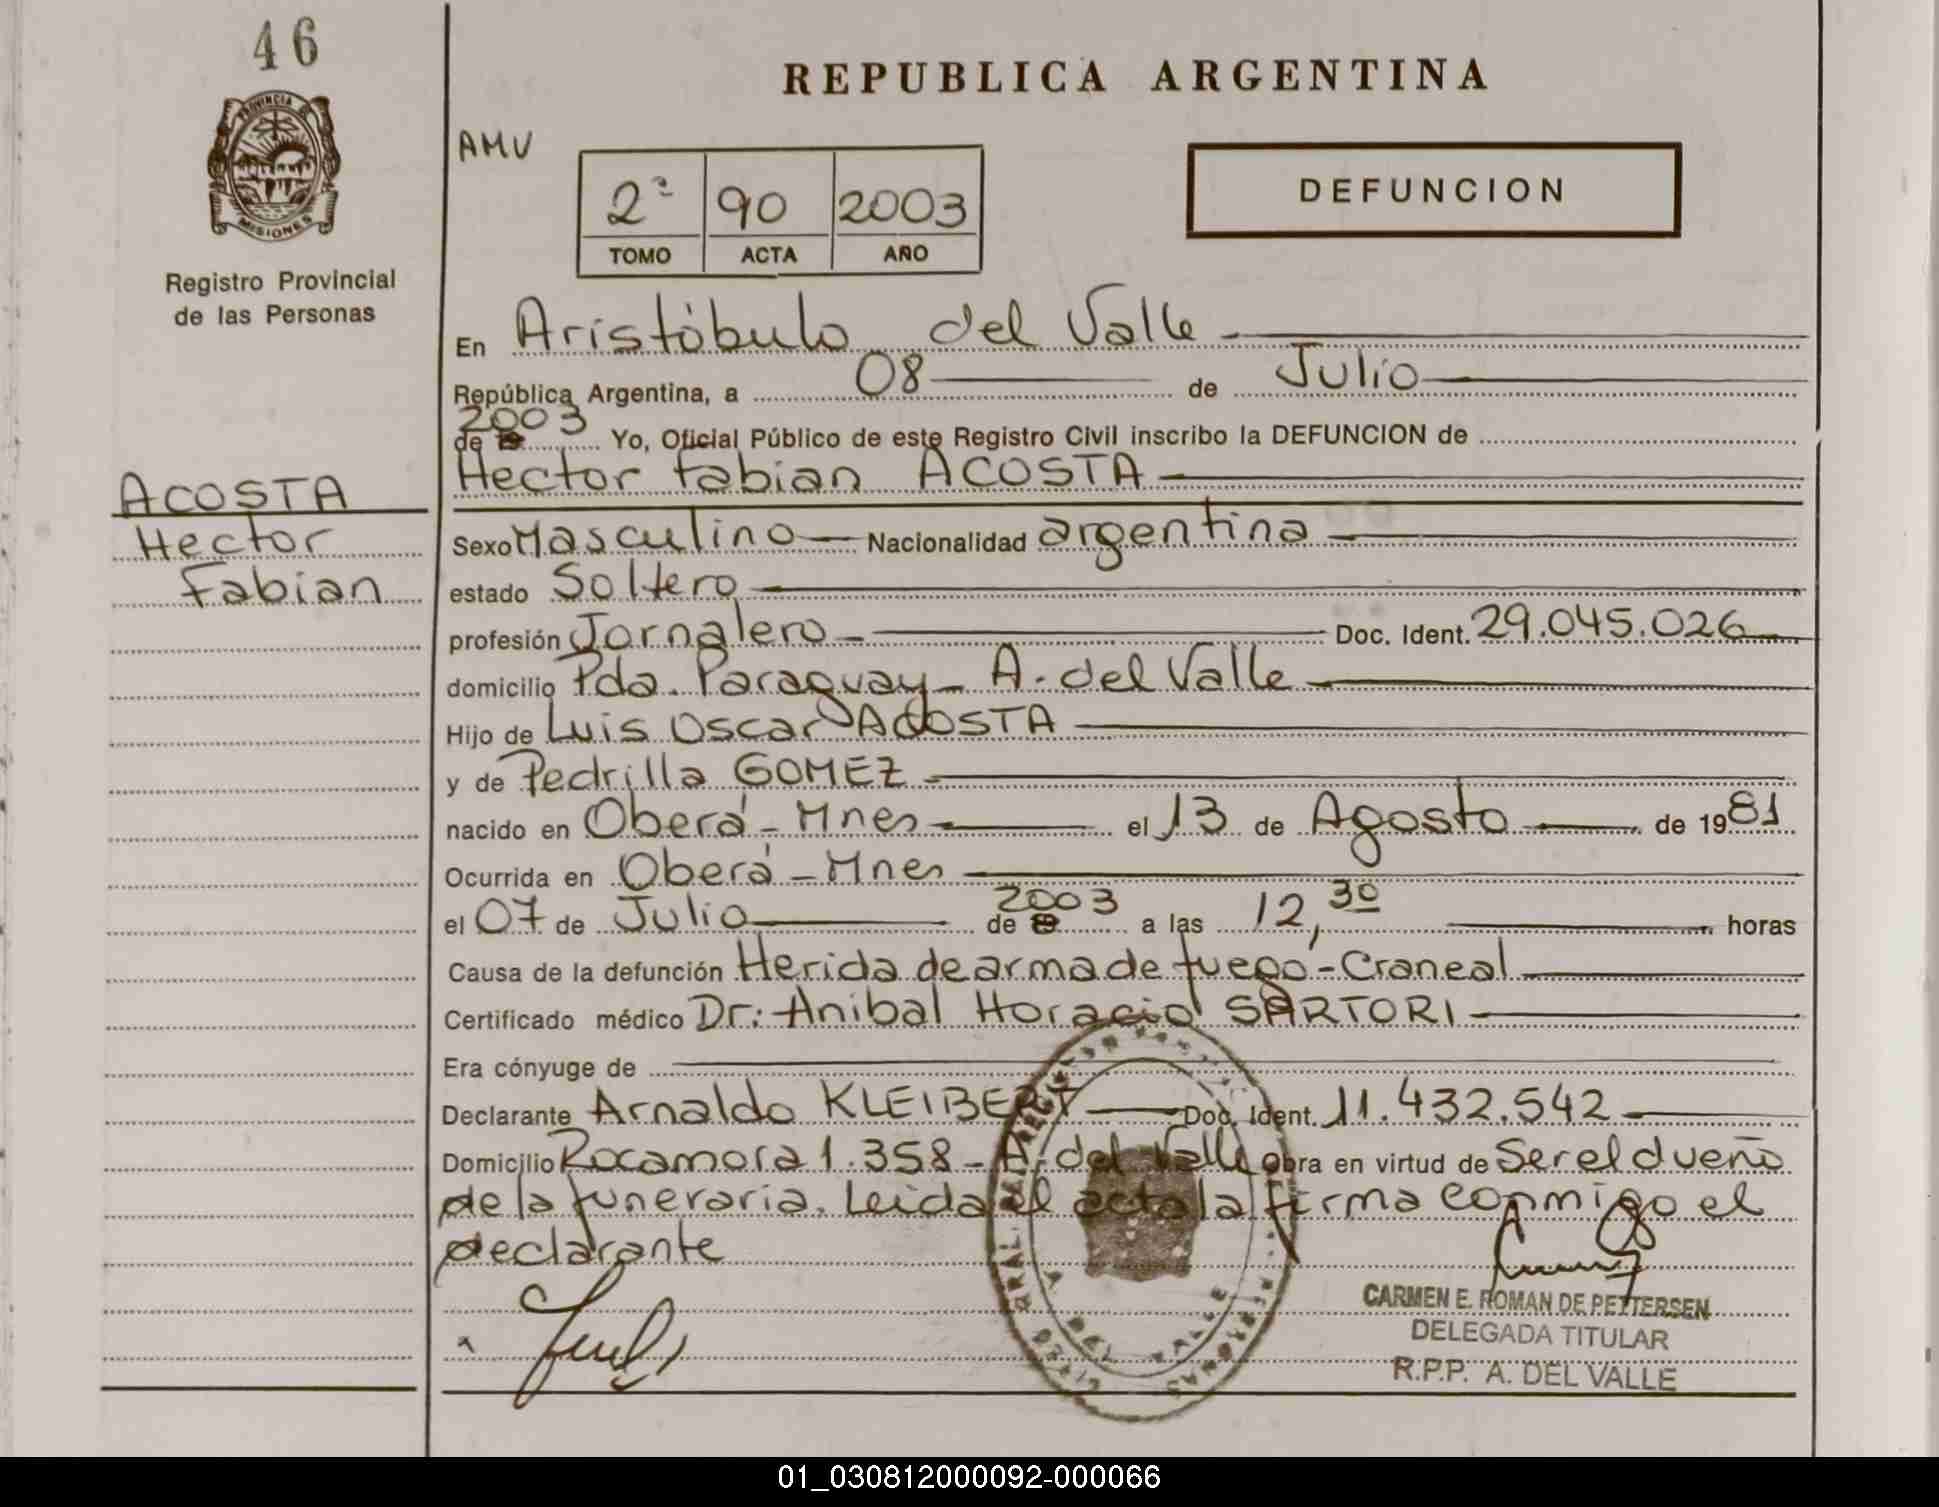 46
PROVINCIA DE
MISIONES
Registro Provincial
de las Personas
ACOSTA
Hector
Fabian
REPUBLICA ARGENTINA
AMV
2º 90 2003
TOMO ACTA AÑO
DEFUNCION
En Aristóbulo del Valle
República Argentina, a 08 de Julio
de 2003 Yo, Oficial Público de este Registro Civil inscribo la DEFUNCION de
Hector Fabian ACOSTA
Sexo Masculino Nacionalidad argentina
estado Soltero
profesión Jornalero Doc. Ident. 29.045.026
domicilio Pda. Paraguay - A. del Valle
Hijo de Luis Oscar ACOSTA
y de Pedrilla GOMEZ
nacido en Oberá - Mnes el 13 de Agosto de 1981
Ocurrida en Oberá - Mnes
el 07 de Julio de 2003 a las 12,30 horas
Causa de la defunción Herida de arma de fuego - Craneal
Certificado médico Dr: Anibal Horacio SARTORI
Era cónyuge de
Declarante Arnaldo KLEIBERT Doc. Ident. 11.432.542
Domicilio Rocamora 1.358 - A. del Valle obra en virtud de Ser el dueño
de la funeraria. Leida el acta la firma conmigo el
declarante
A. DEL VALLE
CARMEN E. ROMAN DE PETTERSEN
DELEGADA TITULAR
R.P.P. A. DEL VALLE
01_030812000092-000066